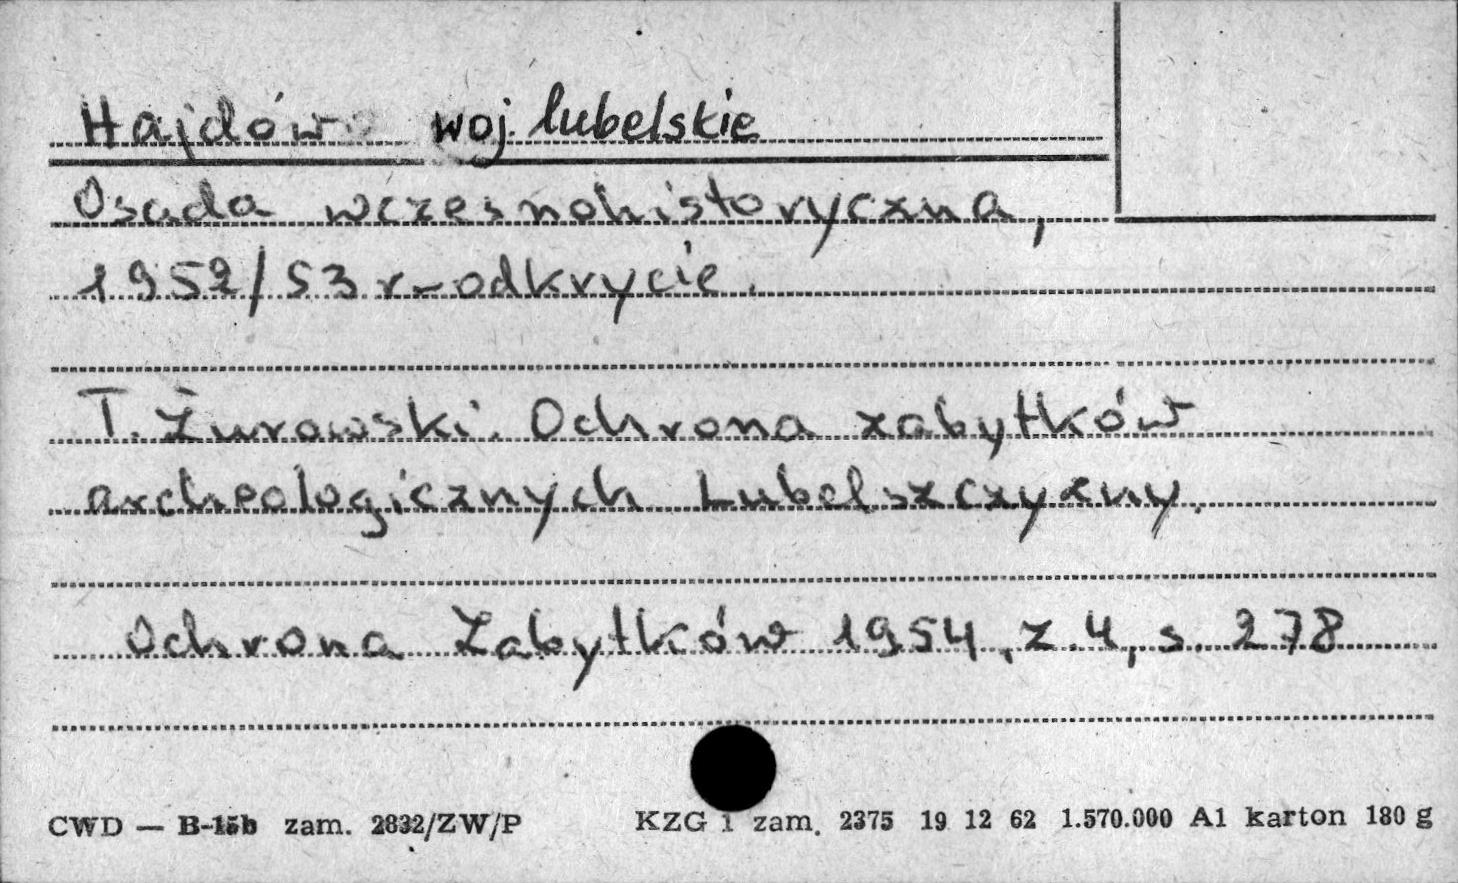 Hajdów woj. lubelskie
Osada wczesnohistoryczna,
1952/53 r – odkrycie.
T. Żurowski. Ochrona zabytków
archeologicznych Lubelszczyzny.
Ochrona Zabytków 1954, z. 4, s. 278
CWD — B-15b zam. 2832/ZW/P KZG 1 zam. 2375 19 12 62 1.570.000 A1 karton 180 g